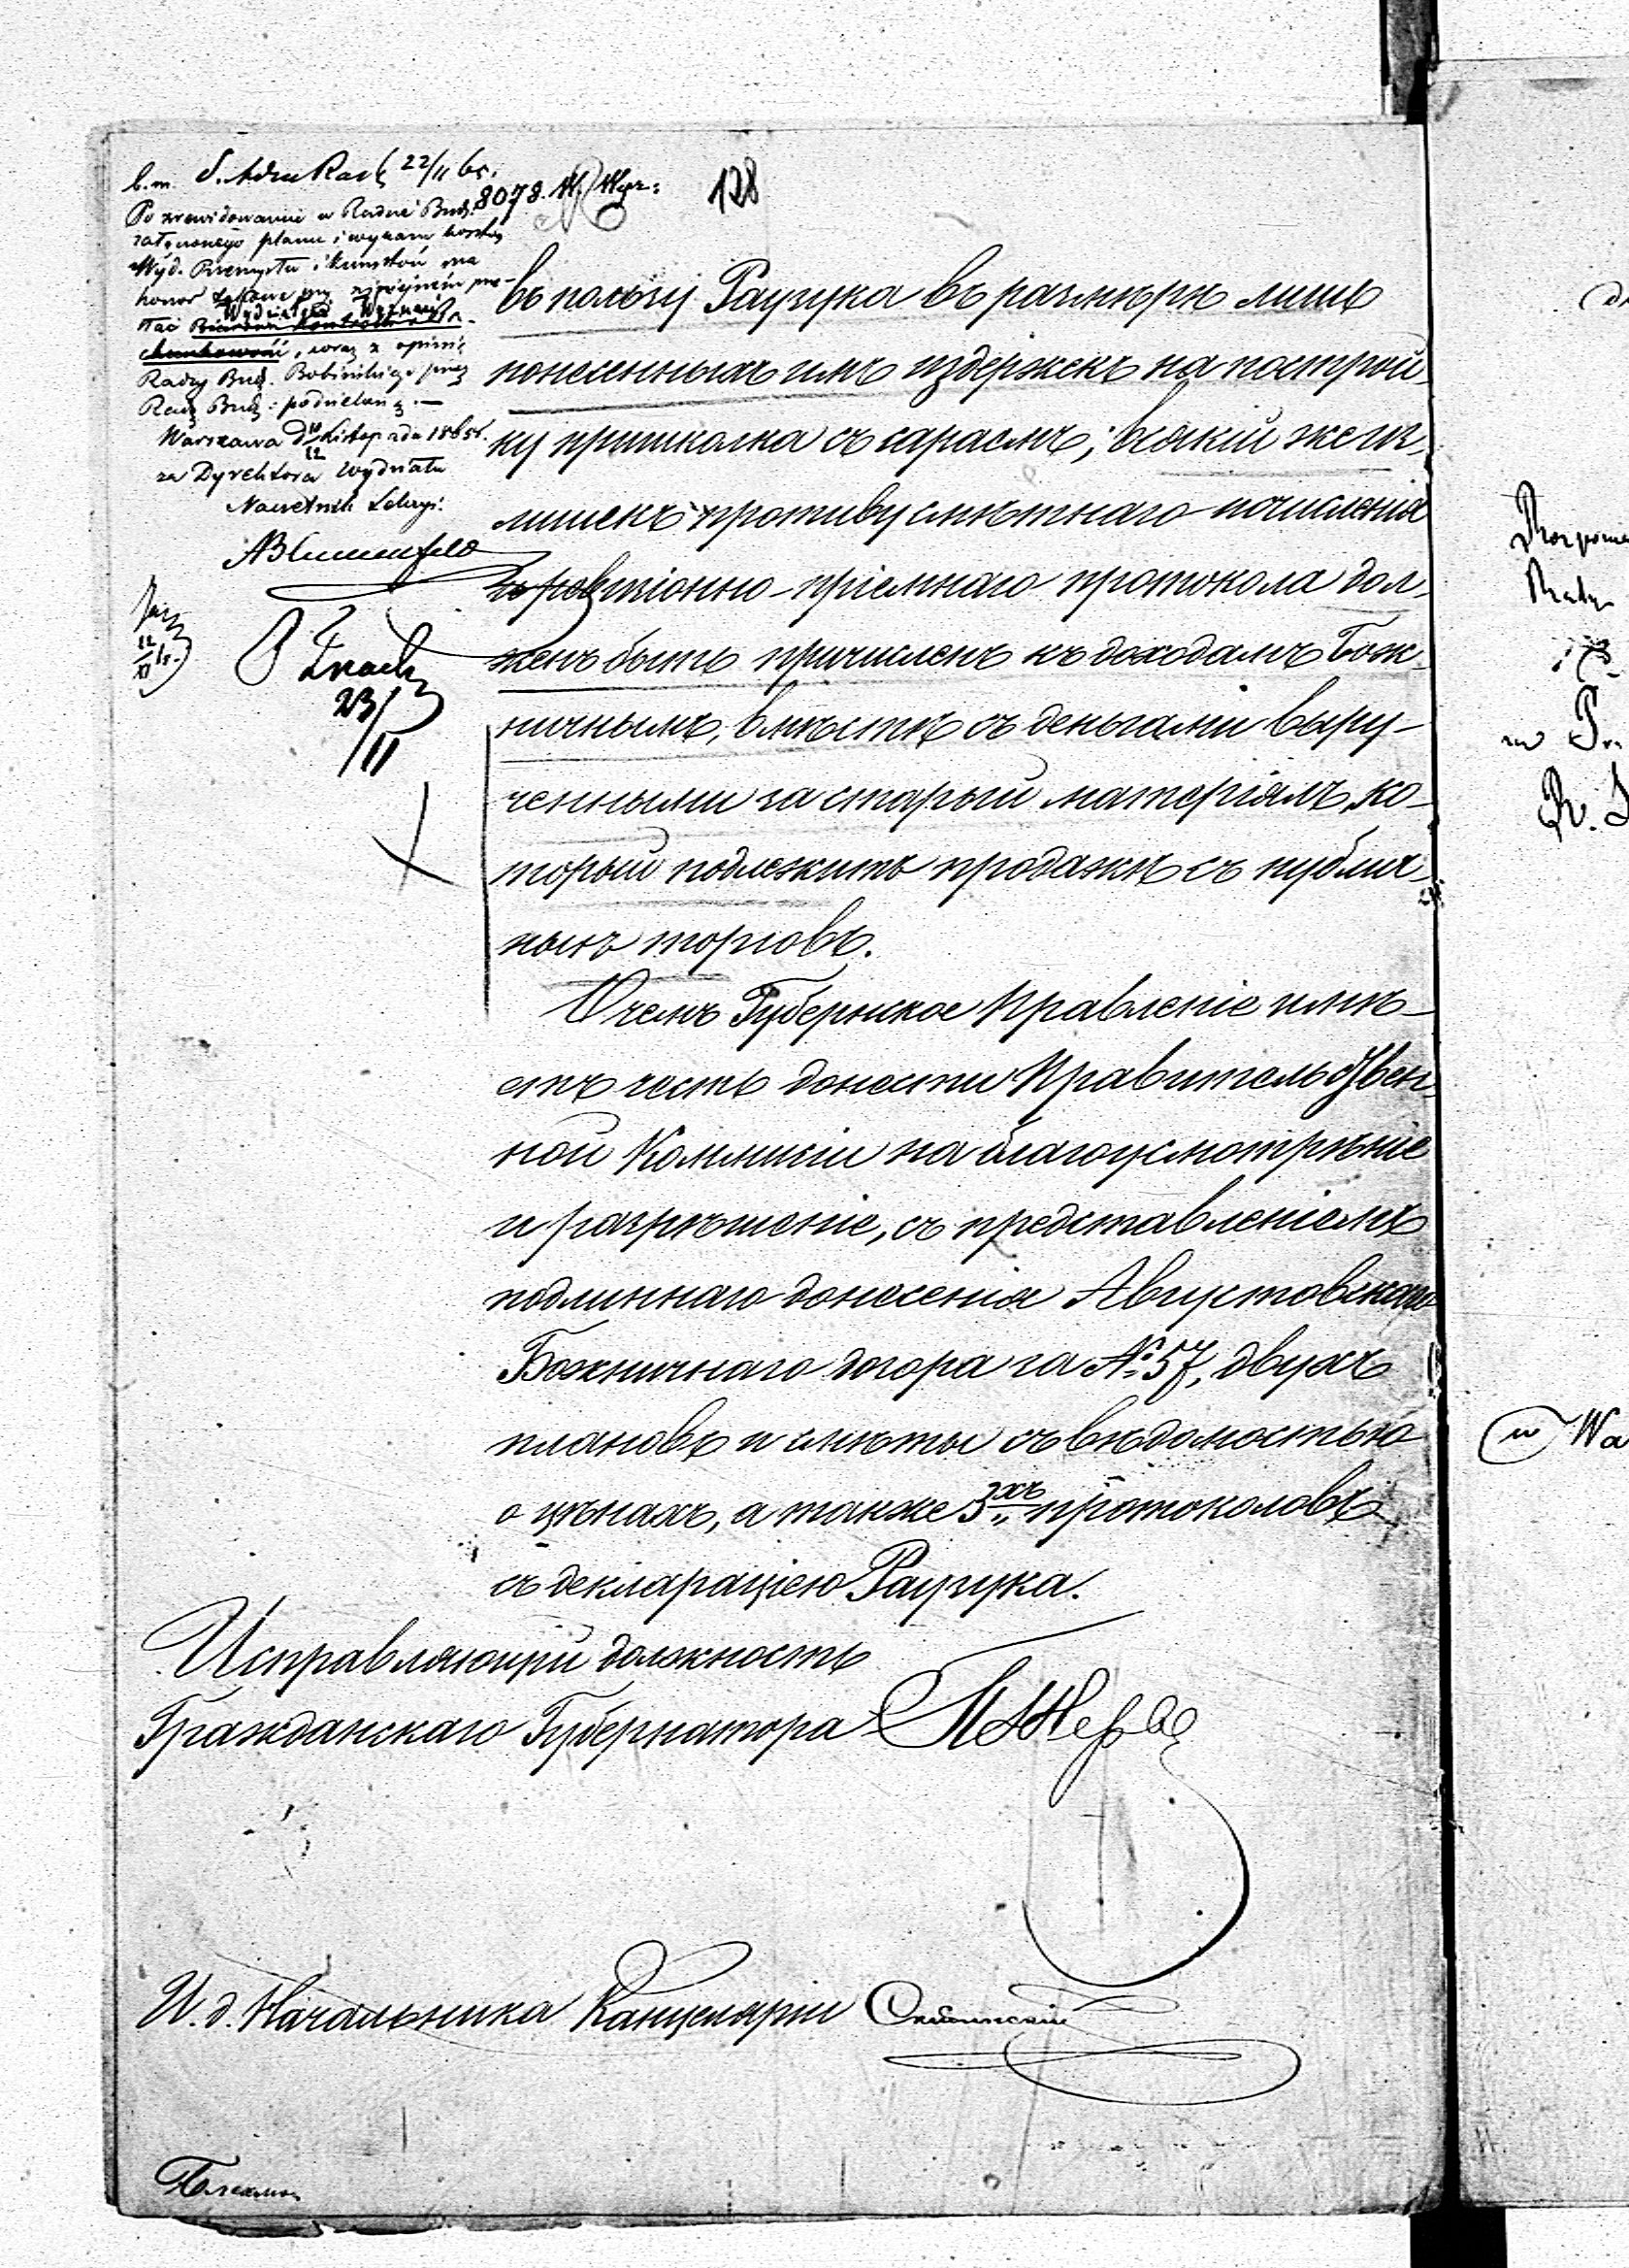 128
8078.
22/11 65.
Po zrewidowaniu w Radzie Bud.
załączonego planu i wykazu kosztów
Wyd. Przemysłu i Kunsztów ma
honor
Wydziałowi Wyznań
, wraz z opinią
Rady Bud. Bobińskiego przez
Radę Bud: podzielaną.—
Warszawa d 10/22 Listopada 1865 r.
za Dyrektora Wydziału
Naczelnik Sekcyi:
ABlumenfeld
23/11
въ пользу Раузука въ размѣрѣ лишь
понесенныхъ имъ издержекъ на построй-
ку пришколка съ сараемъ; всякій же из-
лишекъ противу смѣтнаго исчисленія
и ревизіонно-пріемнаго протокола дол-
женъ быть причисленъ къ доходамъ Бож-
ничнымъ, вмѣстѣ съ деньгами выру-
ченными за старый матеріялъ, ко-
торый подлежитъ продажѣ съ публич-
ныхъ торговъ.
О чемъ Губернское Правленіе имѣ-
етъ честь донести Правительствен-
ной Коммисіи на благоусмотрѣніе
и разрѣшеніе, съ представленіемъ
подлиннаго донесенія Августовскаго
Божничнаго дозора за № 57, двухъ
плановъ и смѣты съ вѣдомостью
о цѣнахъ, а также 3хъ протоколовъ
съ деклараціею Раузука.
Исправляющій должность
Гражданскаго Губернатора
И. д. Начальника Канцеляріи